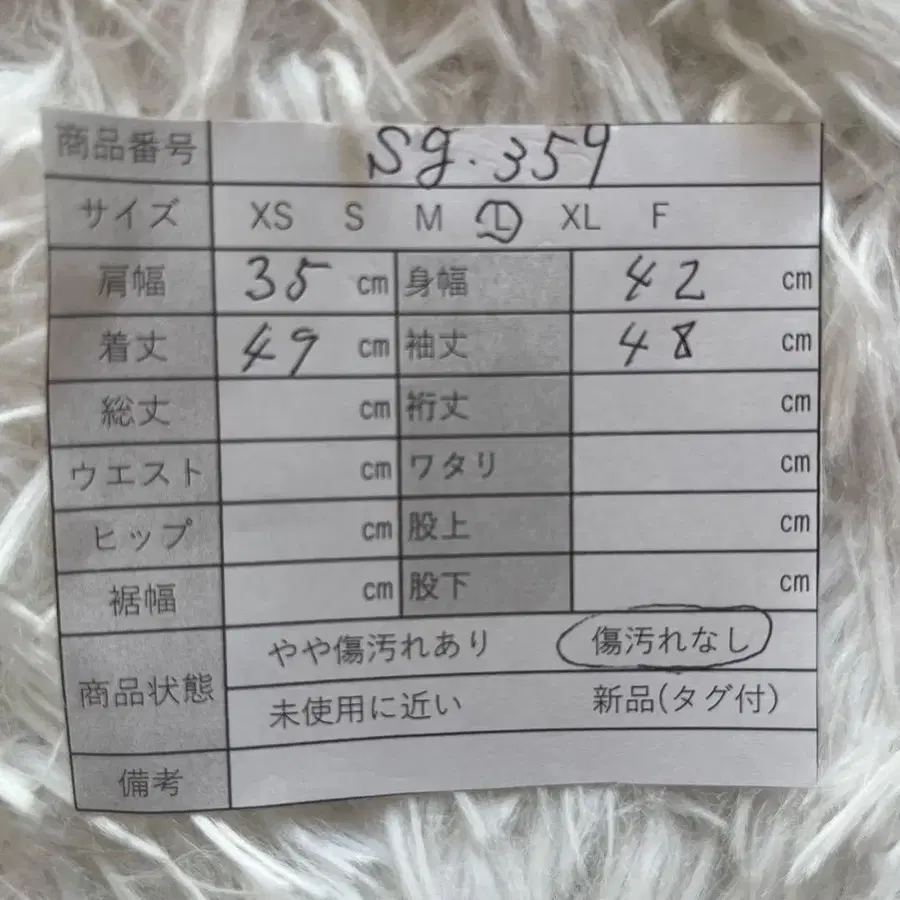 商品番号 sg.359
サイズ XS S M L XL F
肩幅 35 cm 身幅 42 cm
着丈 49 cm 袖丈 48 cm
総丈 cm 裄丈 cm
ウエスト cm ワタリ cm
ヒップ cm 股上 cm
裾幅 cm 股下 cm
商品状態 やや傷汚れあり 傷汚れなし
未使用に近い 新品(タグ付)
備考